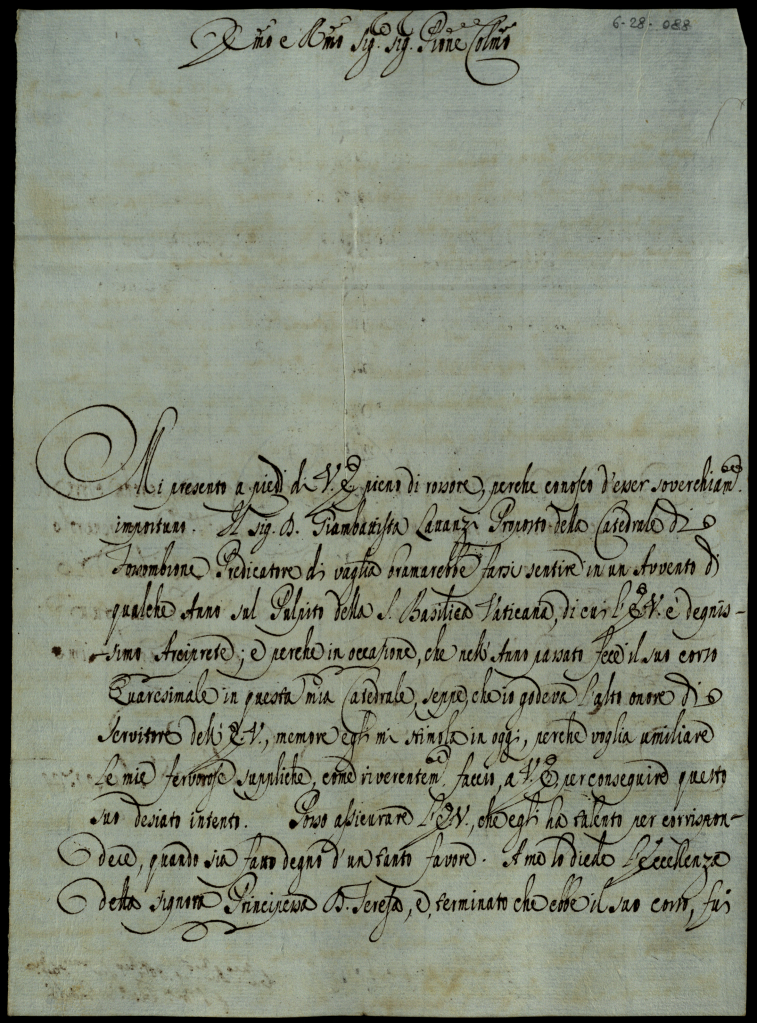 6-28-088
Emo e Rmo Sig.r Sig.r Prone Colmo
Mi presento a piedi di V. E. pieno di rossore, perche conosco d'esser soverchiamte
importuno. Il Sig. D. Giambattista Lavanzi Proposto della Catedrale di
Fossombrone Predicatore di vaglia bramarebbe farsi sentire in un Avvento di
qualche Anno sul Pulpito della S. Basilica Vaticana, di cui l'E. V. è degnis-
simo Arciprete; e perche in occasione, che nell'Anno passato fece il suo corso
Quaresimale in questa mia Catedrale, seppe, che io godeva l'alto onore di
Servitore dell'E. V., memore egli mi stimola in oggi, perche voglia umiliare
le mie fervorose suppliche, come riverentemte faccio, a V. E. per conseguire questo
suo desiato intento. Posso assicurare l'E. V., che egli ha talento per corrispon-
dere, quando sia fatto degno d'un tanto favore. A me lo diede l'Eccellenza
della Signora Principessa D. Teresa, e, terminato che ebbe il suo corso, fui